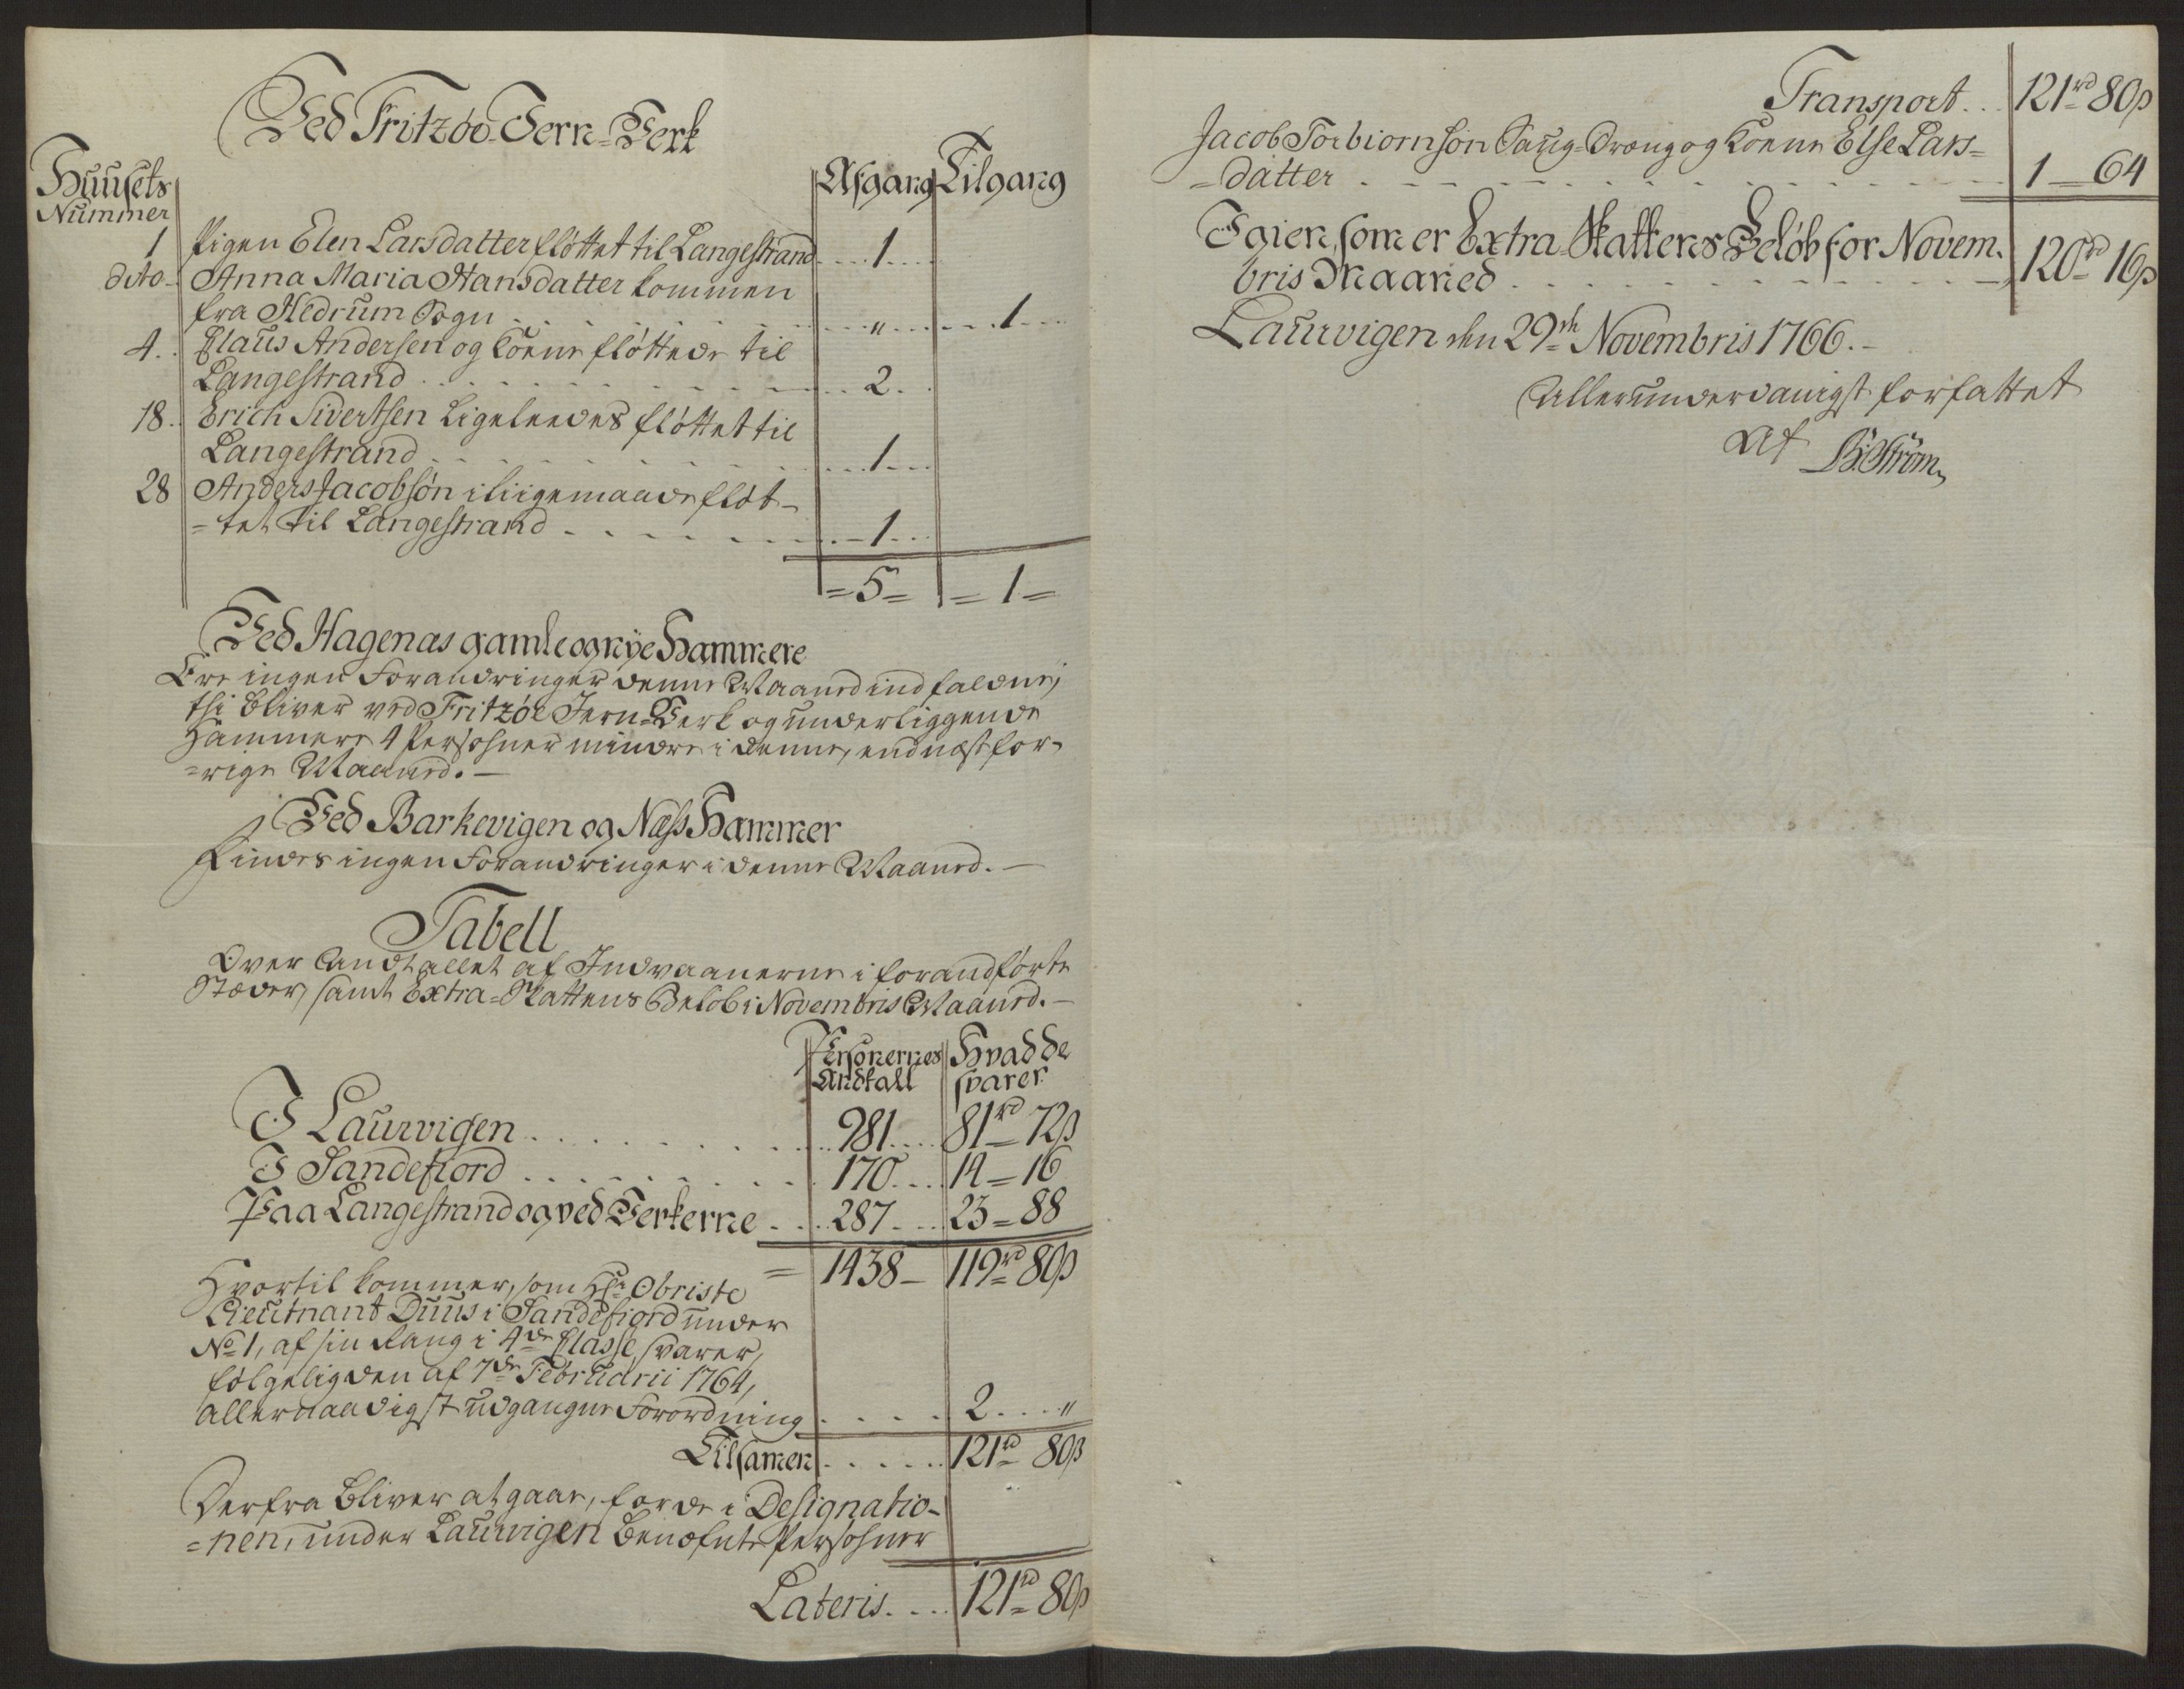 Ved Fritzöe Jern-Verk
Huusets Nummer
Afgang Tilgang
1 Pigen Elen Larsdatter flöttet til Langestrand . . 1 . .
dito - Anna Maria Hansdatter kommen
fra Hedrum Sogn . . . . " . . . . 1 . .
4. Claus Andersen og Kone flöttede til
Langestrand . . . . 2 . .
18. Erich Sivertsen ligeleedes flöttet til
Langestrand . . . . 1 . .
28 Anders Jacobsön i liigemaade flöt-
=tet til Langestrand . . . . 1 . .
= 5 = = 1 =
Ved Hagenæs gamle og nye Hammere
Ere ingen Forandringer denne Maaned indfaldne,
thi bliver ved Fritzöe Jern-Verk og underliggende
Hammere 4 Persohner mindre i denne, end næst for-
=rige Maaned. -
Ved Barkevigen og Næss Hammer
Findes ingen Forandringer i denne Maaned. -
Tabell
Over Andtallet af Indvaanerne i forandförte
Stæder, samt Extra-Skattens Belöb i Novembris Maaned. -
Personernes Andtall
Hvad de svarer
I Laurvigen . . . . 981 . . 81rd 72ß
I Sandefiord . . . . 170 . . 14 = 16
Paa Langestrand og ved Verkerne . . 287 . . 23 = 88
= 1438 - 119rd 80ß
Hvortil kommer, som Hr Obriste
Lieutnant Duus i Sandefiord under
No 1, af sin Rang i 4de Classe, svarer,
fölgelig den af 7de Februarii 1764,
allernaadigst udgangne Forordning . . . . 2 . . "
Tilsamen . . . . 121rd 80ß
Derfra bliver at gaae, for de i Designatio-
=nen, under Laurvigen benæfnte Persohner
Lateris . . . 121rd 80ß
Transport . . 121rd 80ß
Jacob Torbiornsön Saug-Dreng og Kone Else Lars=
=datter . . . . 1 = 64
Igien, som er Extra-Skattens Belöb for Novem.
bris Maaned . . . . 120rd 16ß
Laurvigen den 29de Novembris 1766. -
Allerunderdanigst forfattet
Af B: Ström